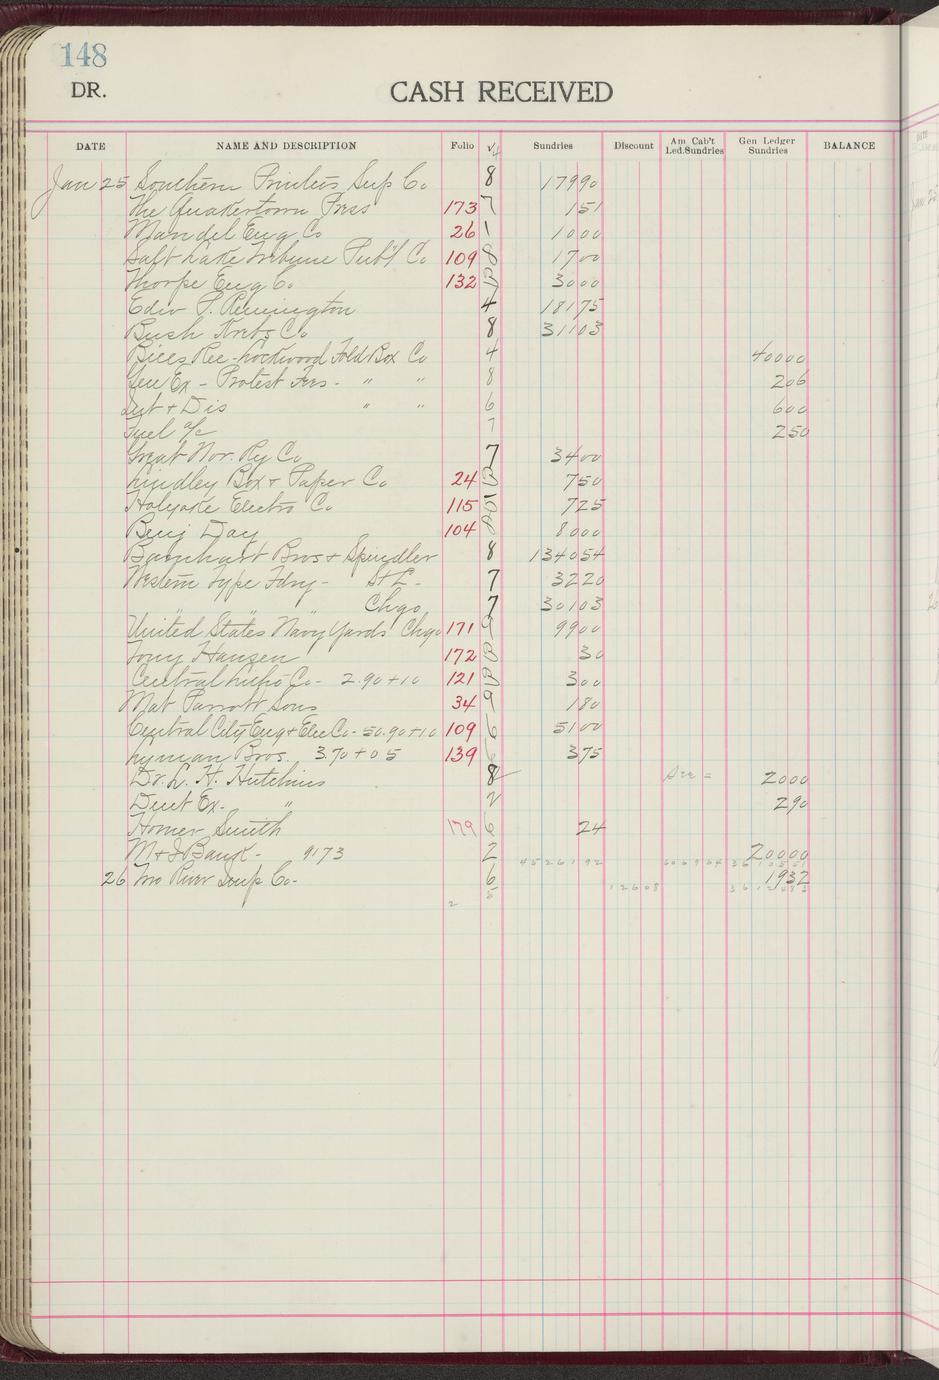 148
DR. CASH RECEIVED
DATE NAME AND DESCRIPTION Folio √ Sundries Discount Am Cab't Led. Sundries Gen Ledger Sundries BALANCE
Jan 25 Southern Printers Sup Co 8 179 90
The Quakertown Press 173 7 1 51
Mandel Eng Co 26 1 10 00
Salt Lake Tribune Pub'l Co 109 8 17 00
Thorpe Eng Co 132 30 00
Edw P. Remington 4 181 75
Bush Krebs Co 8 311 03
Bills Rec - Lockwood Fold Box Co 4 400 00
Gen Ex - Protest Fees - " " 8 2 06
Int + Dis " " 6 6 00
Fuel a/c 7 2 50
Great Nor. Ry Co 7 34 00
Lindley Box + Paper Co 24 7 50
Holyoke Electro Co 115 7 25
Benj Day 104 80 00
Barnhart Bros + Spindler 8 1340 54
Western Type Fdry - St L - 7 32 20
" " " Chgo 7 301 03
United States Navy Yards Chgo 171 9 99 00
Tony Hansen 172 30
Central Litho Co - 2.90 + 10 121 3 00
Mat Parrott Sons 34 9 1 80
Central City Eng + Elec Co - 50.90 + 10 109 6 51 00
Lyman Bros. 3.70 + 05 139 6 3 75
Dr. L. H. Hutchins 8 20 00
Duct Ex. " 2 2 90
Homer Smith 179 6 24
M + I Bank - 9173 2 200 00
4526192 3610551
26 Mo River Sup Co - 6 19 32
12608
2